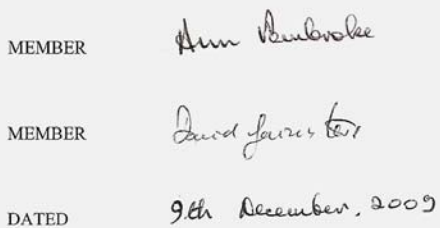 MEMBER Ann Pembroke
MEMBER David
DATED 9th December, 2009